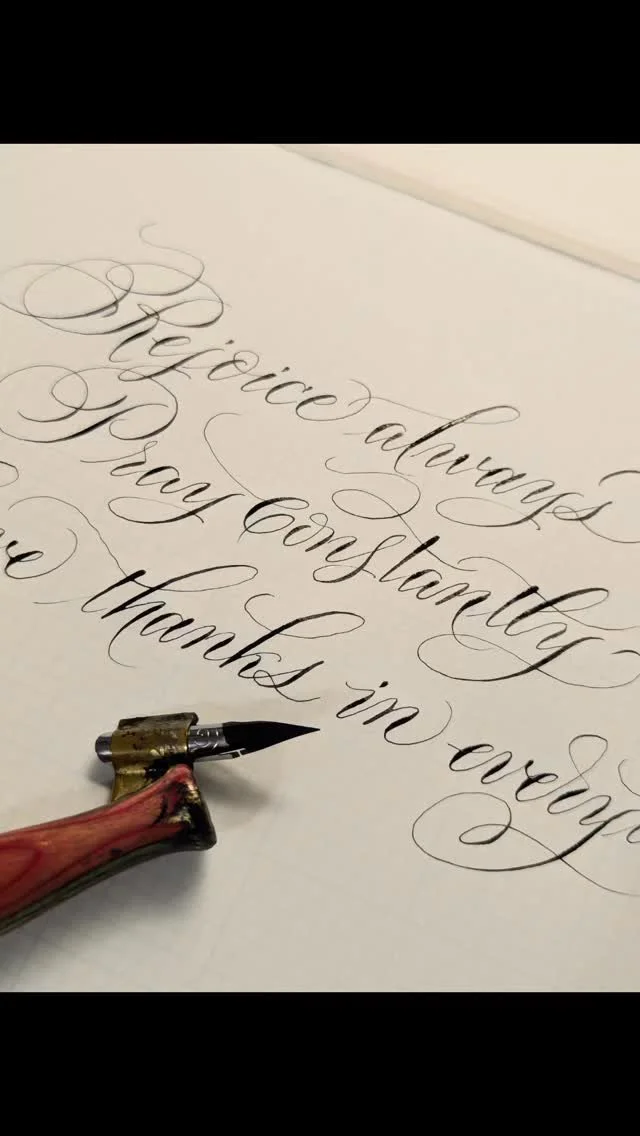 Rejoice always
Pray constantly
thanks in